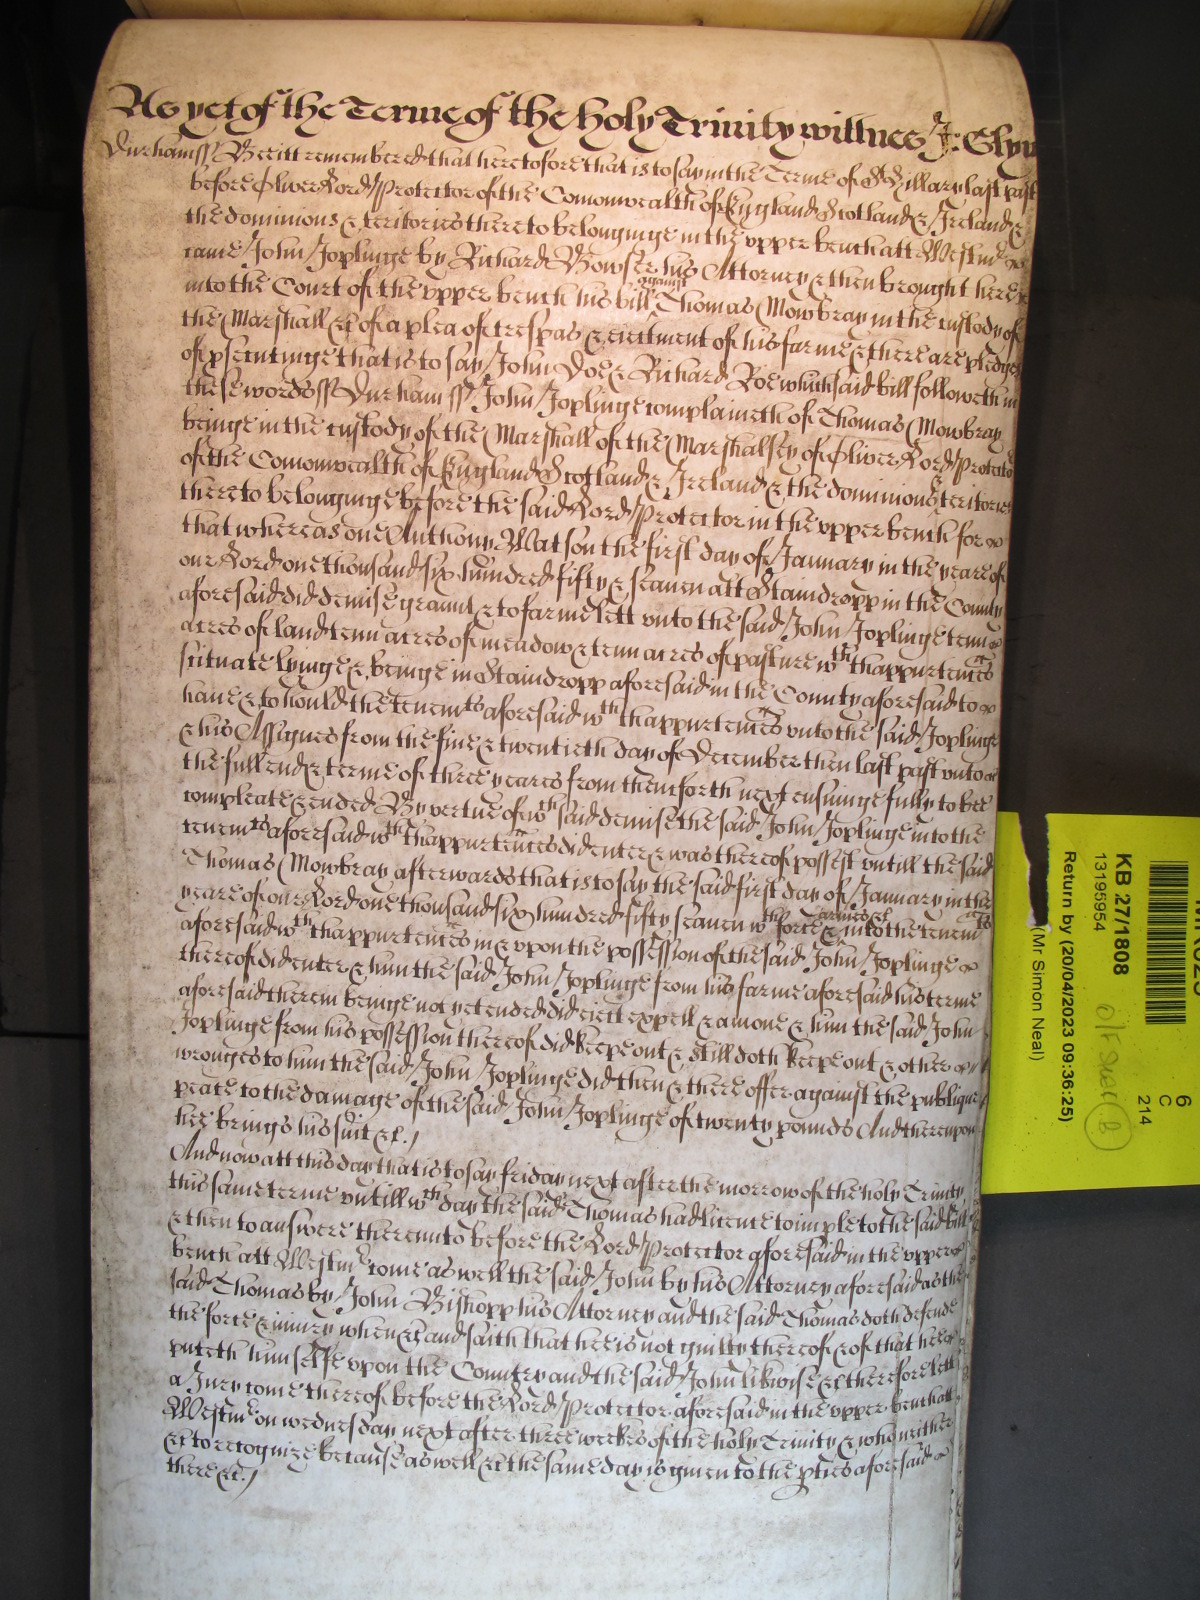 As yet of the Terme of the holy Trinity wittnes J: Glyn
Durham ss Bee itt remembered that heretofore that is to say in the Terme of St Hillary last past
before Oliver Lord Protector of the Comonwealth of England Scotland & Ireland &
the dominions & teritories thereto belonginge in the upper bench att Westmr
came John Joplinge by Richard Bowser his Attorney & then brought here
into the Court of the upper bench his bill against Thomas Mowbray in the custody of
the Marshall &c of a plea of trespas & eiectment of his farme & there are pledges
of psecutinge that is to say John Doe & Richard Roe which said bill followeth in
these words ss Durham ss John Joplinge complaineth of Thomas Mowbray
beinge in the custody of the Marshall of the Marshalsey of Oliver Lord Protector
of the Comonwealth of England Scotland & Ireland & the dominions & teritories
thereto belonginge before the said Lord Protector in the upper bench for
that whereas one Anthony Watson the first day of January in the yeare of
our Lord one thousand six hundred fifty & seaven att Staindropp in the County
aforesaid did demise graunt & to farme lett unto the said John Joplinge tenn
acres of land tenn acres of meadow & tenn acres of pasture wth thappurtences
situate lyinge & beinge in Staindropp aforesaid in the County aforesaid to
have & to hould the tenemts aforesaid wth thappurtences unto the said Joplinge
& his Assignes from the five & twentieth day of December then last past unto
the full end & terme of three yeares from thenceforth next ensuinge fully to bee
compleate & ended By vertue of wch said demise the said John Joplinge into the
tenemts aforesaid wth thappurtences did enter & was thereof possest untill the said
Thomas Mowbray afterwards that is to say the said first day of January in the
yeare of our Lord one thousand six hundred fifty seaven wth force & armes &c into the tenemts
aforesaid wth thappurtences in & upon the possession of the said John Joplinge
thereof did enter & him the said John Joplinge from his farme aforesaid his terme
aforesaid therein beinge not yet ended did eiect expell & amove & him the said John
Joplinge from his possession thereof did keepe out & still doth keepe out & other
wronges to him the said John Joplinge did then & there offer against the publique
peace to the damage of the said John Joplinge of twenty pounds And thereupon
hee brings his suit &c.)
And now att this day that is to say friday next after the morrow of the holy Trinity
this same terme untill wch day the said Thomas had licence to imple to the said bill
& then to answere thereunto before the Lord Protector aforesaid in the upper
bench att Westmr come as well the said John by his Attorney aforesaid as the
said Thomas by John Bishopp his Attorney and the said Thomas doth defende
the force & iniury when &c and saith that hee is not guilty thereof & of that hee
putteth himselfe upon the Country and the said John likwise &c therefore lett
a Jury come thereof before the Lord Protector aforesaid in the upper bench att
Westmr on wednesday next after three weekes of the holy Trinity & who neither
&c to recognize because as well &c the same day is given to the pties aforesaid
there &c.)
KB 27/1808
13195954
Return by (20/04/2023 09:36:25)
(Mr Simon Neal)
6
C
214